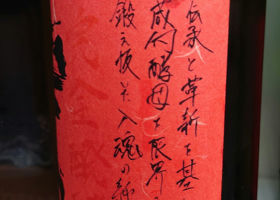 伝承と革新を基
蔵付酵母を限界
鍛え抜いた入魂の新